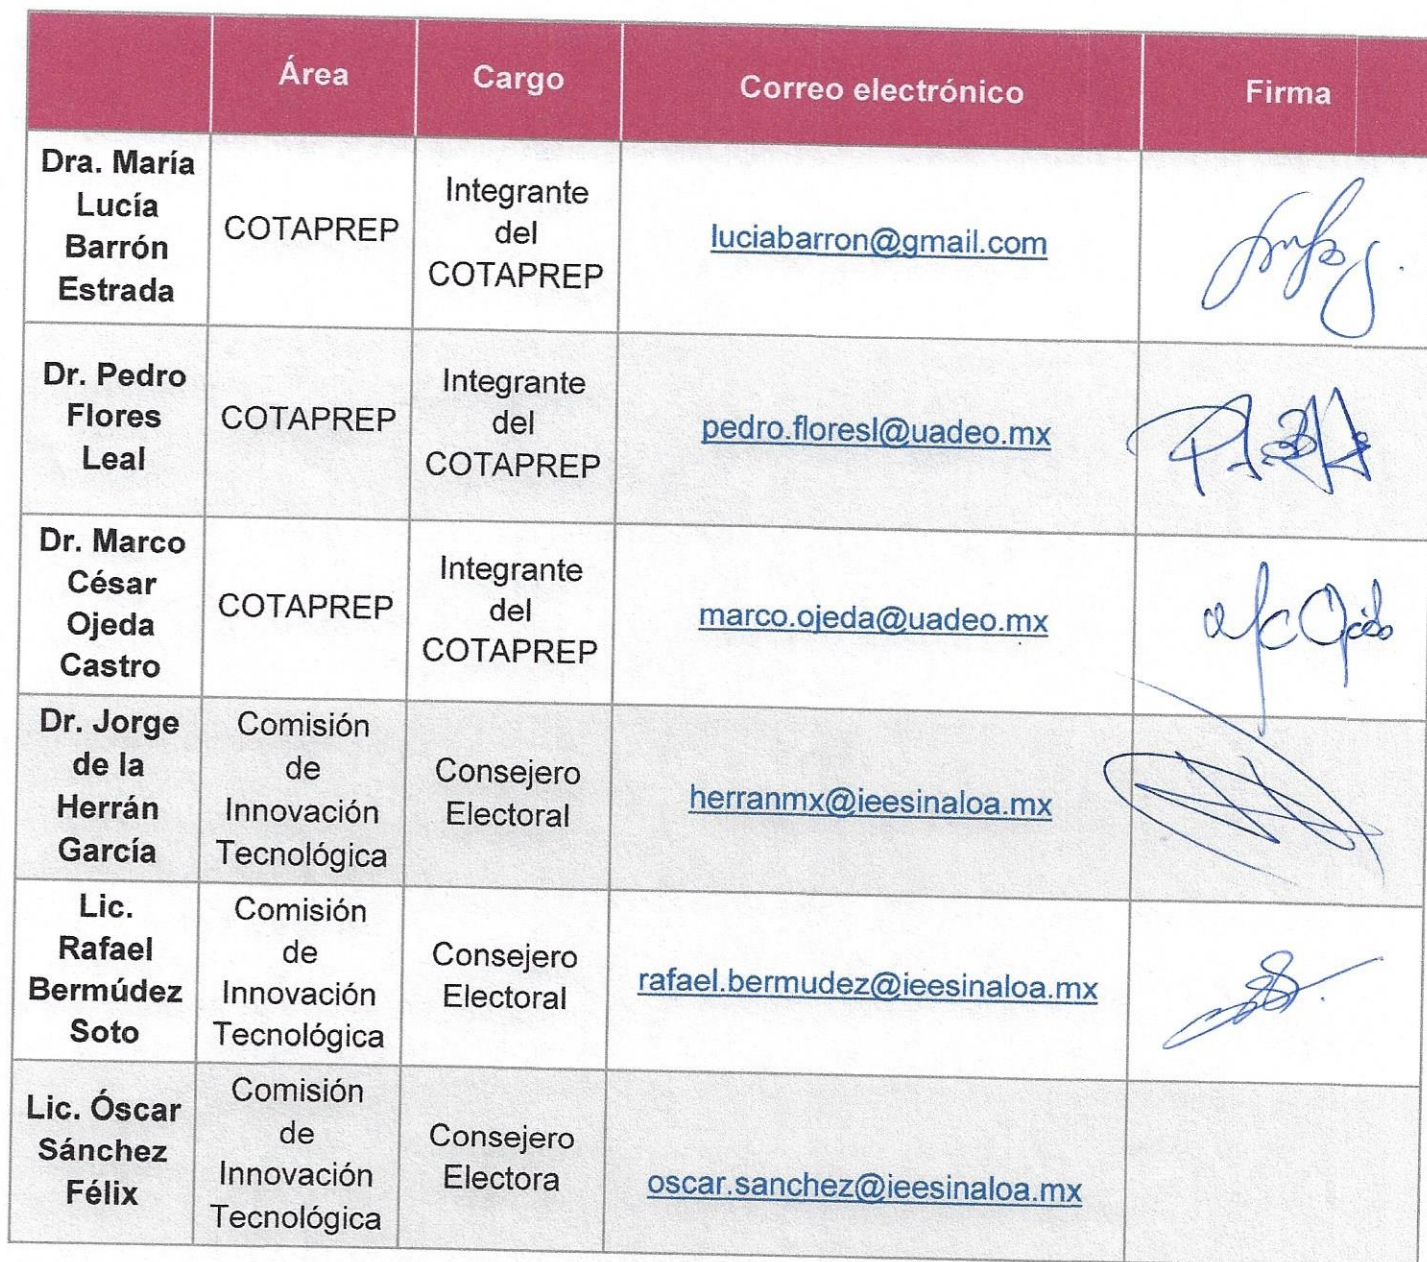 Área Cargo Correo electrónico Firma
Dra. María
Lucía
Barrón
Estrada
COTAPREP
Integrante
del
COTAPREP
luciabarron@gmail.com
Dr. Pedro
Flores
Leal
COTAPREP
Integrante
del
COTAPREP
pedro.floresl@uadeo.mx
Dr. Marco
César
Ojeda
Castro
COTAPREP
Integrante
del
COTAPREP
marco.ojeda@uadeo.mx
Dr. Jorge
de la
Herrán
García
Comisión
de
Innovación
Tecnológica
Consejero
Electoral
herranmx@ieesinaloa.mx
Lic.
Rafael
Bermúdez
Soto
Comisión
de
Innovación
Tecnológica
Consejero
Electoral
rafael.bermudez@ieesinaloa.mx
Lic. Óscar
Sánchez
Félix
Comisión
de
Innovación
Tecnológica
Consejero
Electora
oscar.sanchez@ieesinaloa.mx